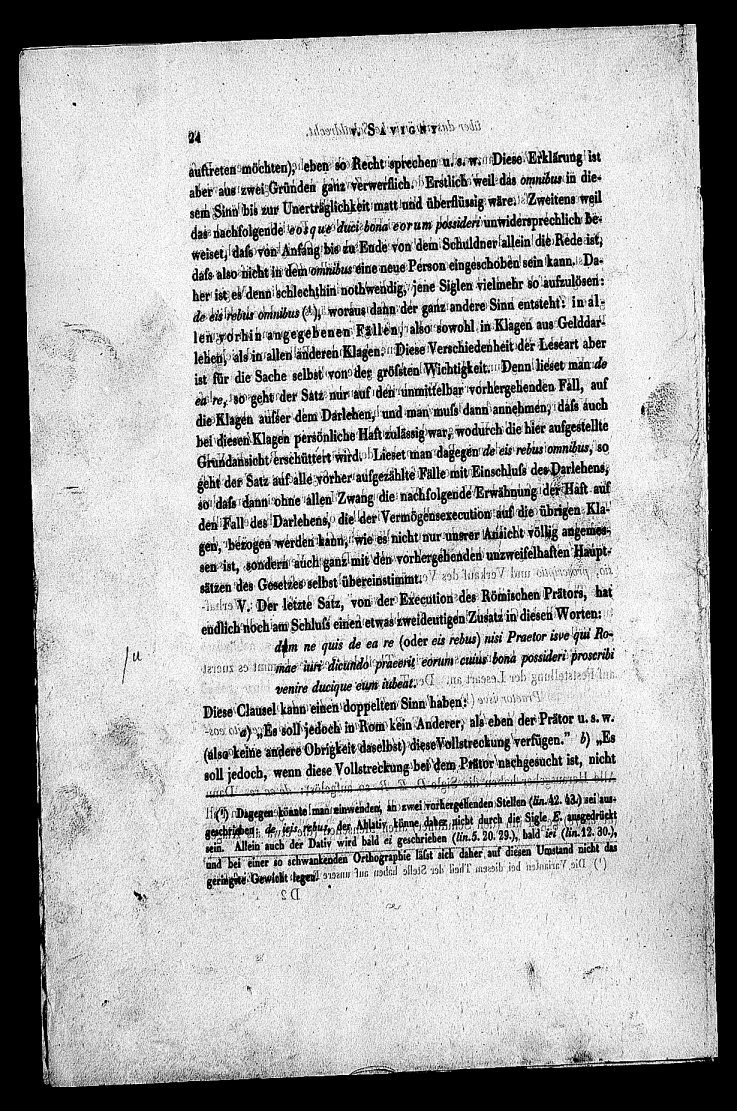 24
v. SAVIGNY
auftreten möchten), eben so Recht sprechen u. s. w. Diese Erklärung ist
aber aus zwei Gründen ganz verwerflich. Erstlich weil das omnibus in die-
sem Sinn bis zur Unerträglichkeit matt und überflüssig wäre. Zweitens weil
das nachfolgende eosque duci bona eorum possideri unwidersprechlich be-
weiset, daſs von Anfang bis zu Ende von dem Schuldner allein die Rede ist,
daſs also nicht in dem omnibus eine neue Person eingeschoben sein kann. Da-
her ist es denn schlechthin nothwendig, jene Siglen vielmehr so aufzulösen:
de eis rebus omnibus (¹), woraus dann der ganz andere Sinn entsteht: in al-
len vorhin angegebenen Fällen, also sowohl in Klagen aus Gelddar-
lehen, als in allen anderen Klagen. Diese Verschiedenheit der Leseart aber
ist für die Sache selbst von der gröſsten Wichtigkeit. Denn lieset man de
ea re, so geht der Satz nur auf den unmittelbar vorhergehenden Fall, auf
die Klagen auſser dem Darlehen, und man muſs dann annehmen, daſs auch
bei diesen Klagen persönliche Haft zulässig war, wodurch die hier aufgestellte
Grundansicht erschüttert wird. Lieset man dagegen de eis rebus omnibus, so
geht der Satz auf alle vorher aufgezählte Fälle mit Einschluſs des Darlehens,
so daſs dann ohne allen Zwang die nachfolgende Erwähnung der Haft auf
den Fall des Darlehens, die der Vermögensexecution auf die übrigen Kla-
gen, bezogen werden kann, wie es nicht nur unsrer Ansicht völlig angemes-
sen ist, sondern auch ganz mit den vorhergehenden unzweifelhaften Haupt-
sätzen des Gesetzes selbst übereinstimmt.
V. Der letzte Satz, von der Execution des Römischen Prätors, hat
endlich noch am Schluſs einen etwas zweideutigen Zusatz in diesen Worten:
dum ne quis de ea re (oder eis rebus) nisi Praetor isve qui Ro-
mae iuri dicundo praeerit eorum cuius bona possideri proscribi
venire ducique eum iubeat.
Diese Clausel kann einen doppelten Sinn haben:
a) „Es soll jedoch in Rom kein Anderer, als eben der Prätor u. s. w.
(also keine andere Obrigkeit daselbst) diese Vollstreckung verfügen.” b) „Es
soll jedoch, wenn diese Vollstreckung bei dem Prätor nachgesucht ist, nicht
(¹) Dagegen könnte man einwenden, an zwei vorhergehenden Stellen (lin. 42. 43.) sei aus-
geschrieben de ieis rebus, der Ablativ könne daher nicht durch die Sigle E. ausgedrückt
sein. Allein auch der Dativ wird bald ei geschrieben (lin. 5. 20. 29.), bald iei (lin. 12. 30.),
und bei einer so schwankenden Orthographie läſst sich daher auf diesen Umstand nicht das
geringste Gewicht legen.